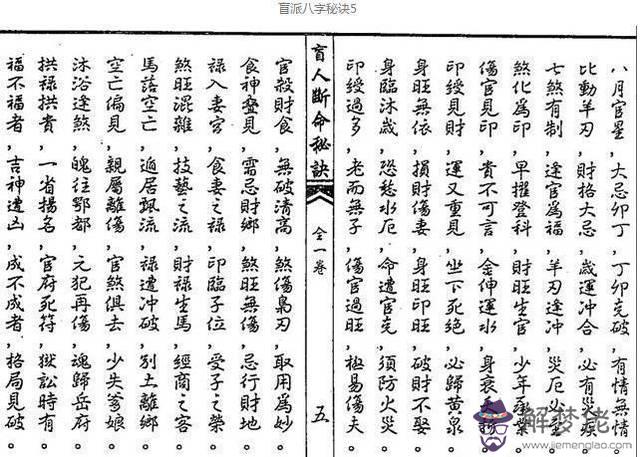 盲派八字秘诀5
八月官星,大忌卯丁,丁卯克破,有情無情。
比動羊刃,財格大忌,歲運冲合,必有災疾。
七煞有制,逢官爲福,羊刃逢冲,災厄
煞化爲印,早擢登科,財旺生官,少年
傷官見印,貴不可言,金伸運水,身衰
印綬見財,運又重見,坐下死絕,必歸黃泉。
身旺無依,損財傷妻,身旺印旺,破財不娶。
身臨沐歲,恐愁水厄,命遭官克,須防火災。
印綬過多,老而無子,傷官過旺,極易傷夫。
盲人斷命秘訣
全一卷
五
官殺財食,無破清高,煞傷梟刃,取用爲妙。
食神疊見,需忌財鄉,煞旺無傷,忌行財地。
祿入妻宮,食妻之祿,印臨子位,受子之榮。
煞旺混雜,技藝之流,財祿生馬,經商之客。
馬落空亡,遁居飄流,祿遭冲破,別土離鄉。
空亡偏見,親屬離傷,官煞俱去,少失爹娘。
沐浴逢煞,魄往鄂都,元犯再傷,魂歸岳府。
拱祿拱貴,一省揚名,官府死符,獄訟時有。
福不福者,吉神遭凶,成不成者,格局見破。
解梦佬
www.jiemenglao.com